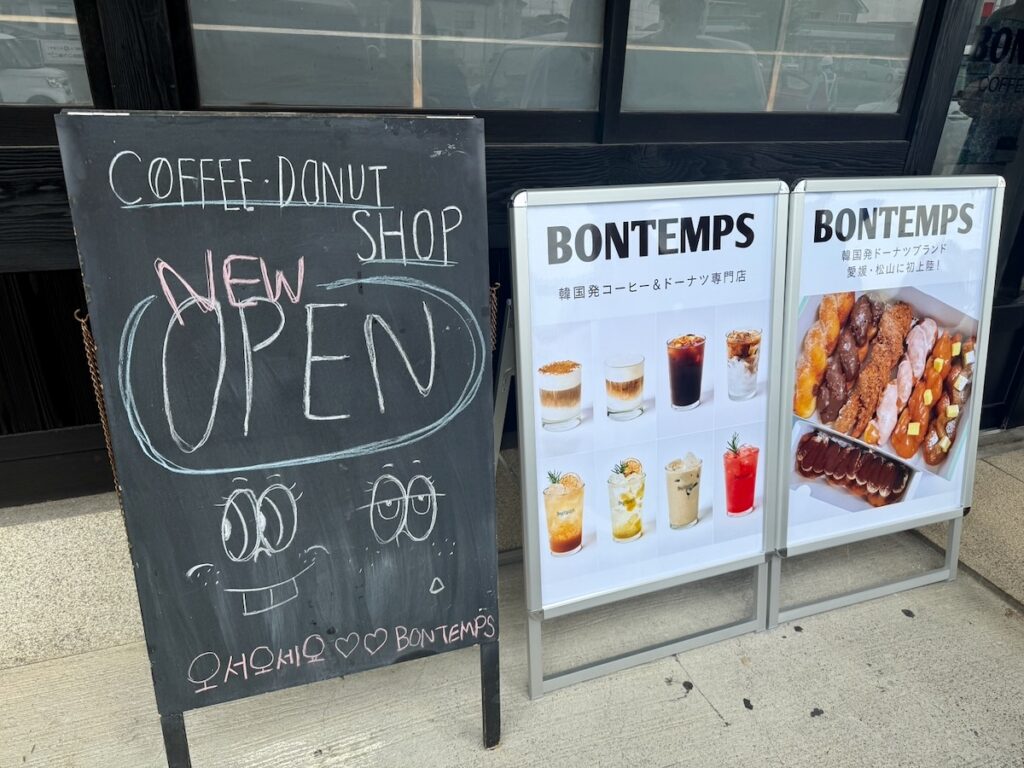 COFFEE・DONUT
SHOP
NEW
OPEN
오서오세오♡♡BONTEMPS
BONTEMPS
韓国発コーヒー&ドーナツ専門店
BONTEMPS
韓国発ドーナツブランド
愛媛・松山に初上陸!